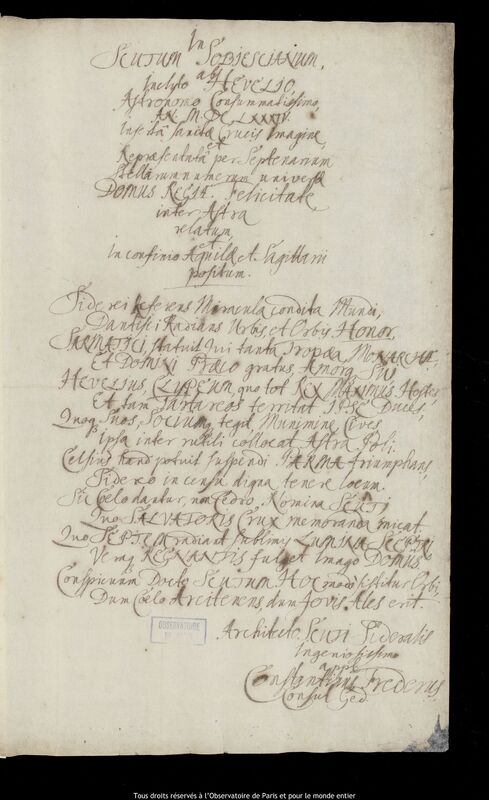 In
SCUTUM SOBIESCIANUM,
ab
Inclyto HEVELIO,
Astronomo Consummatissimo,
AN. M. DC. LXXXIV.
Insertâ sanctæ Crucis Imagine,
et
Repræsentatâ per Septenarium
Stellarum numerum universæ
DOMUS REGIÆ Felicitate,
inter Astra
relatum,
et
In confinio Aquilæ et Sagittarii
positum.
Siderei referens Miracula condita Mundi,
Dantisci Radians Urbis, et Orbis Honor,
SARMATICI, statuit Tui tanta Tropæa MONARCHÆ
Et DOMINI Præco gratus, Amorq; SUI
HEVELIUS, CLYPEUM, quo tot REX MAXIMUS Hostes
Et tam Tartareos territat IPSE Duces,
Quoq; Suos, Socium, tegit Munimine Cives
Ipsa inter rutili collocat Astra Poli.
Celsius haud potuit suspendi PARMA triumphans,
Sidereo in censu digna tenere locum.
Sic Cœlo dantur, non Cedro Nomina SCUTI
Quo SALVATORIS Crux memoranda micat.
Quo SEPTEM radiant sublimis LUMINA SCEPTRI
Veraq; REGNANTIS fulget Imago DOMUS.
Conspicuum Docto SCUTUM HOC modo sistitur Orbi
Dum Cœlo Arcitenens, dum Jovis Ales erit.
Architecto Scuti Sideralis
Ingeniosissimo
appl.
Constantinus Frederus,
Consul Ged.
OBSERVATOIRE
DE PARIS
Tous droits réservés à l'Observatoire de Paris et pour le monde entier